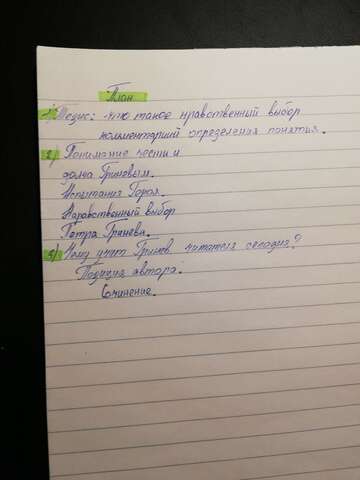 План
1) Тезис: что такое нравственный выбор
комментарий определения понятья.
2) Понимание чести и
долга Гринёвым.
Испытания Героя.
Нравственный выбор
Петра Гринёва.
3) Чему учит Гринёв читателя сегодня?
Позиция автора.
Сочинение.